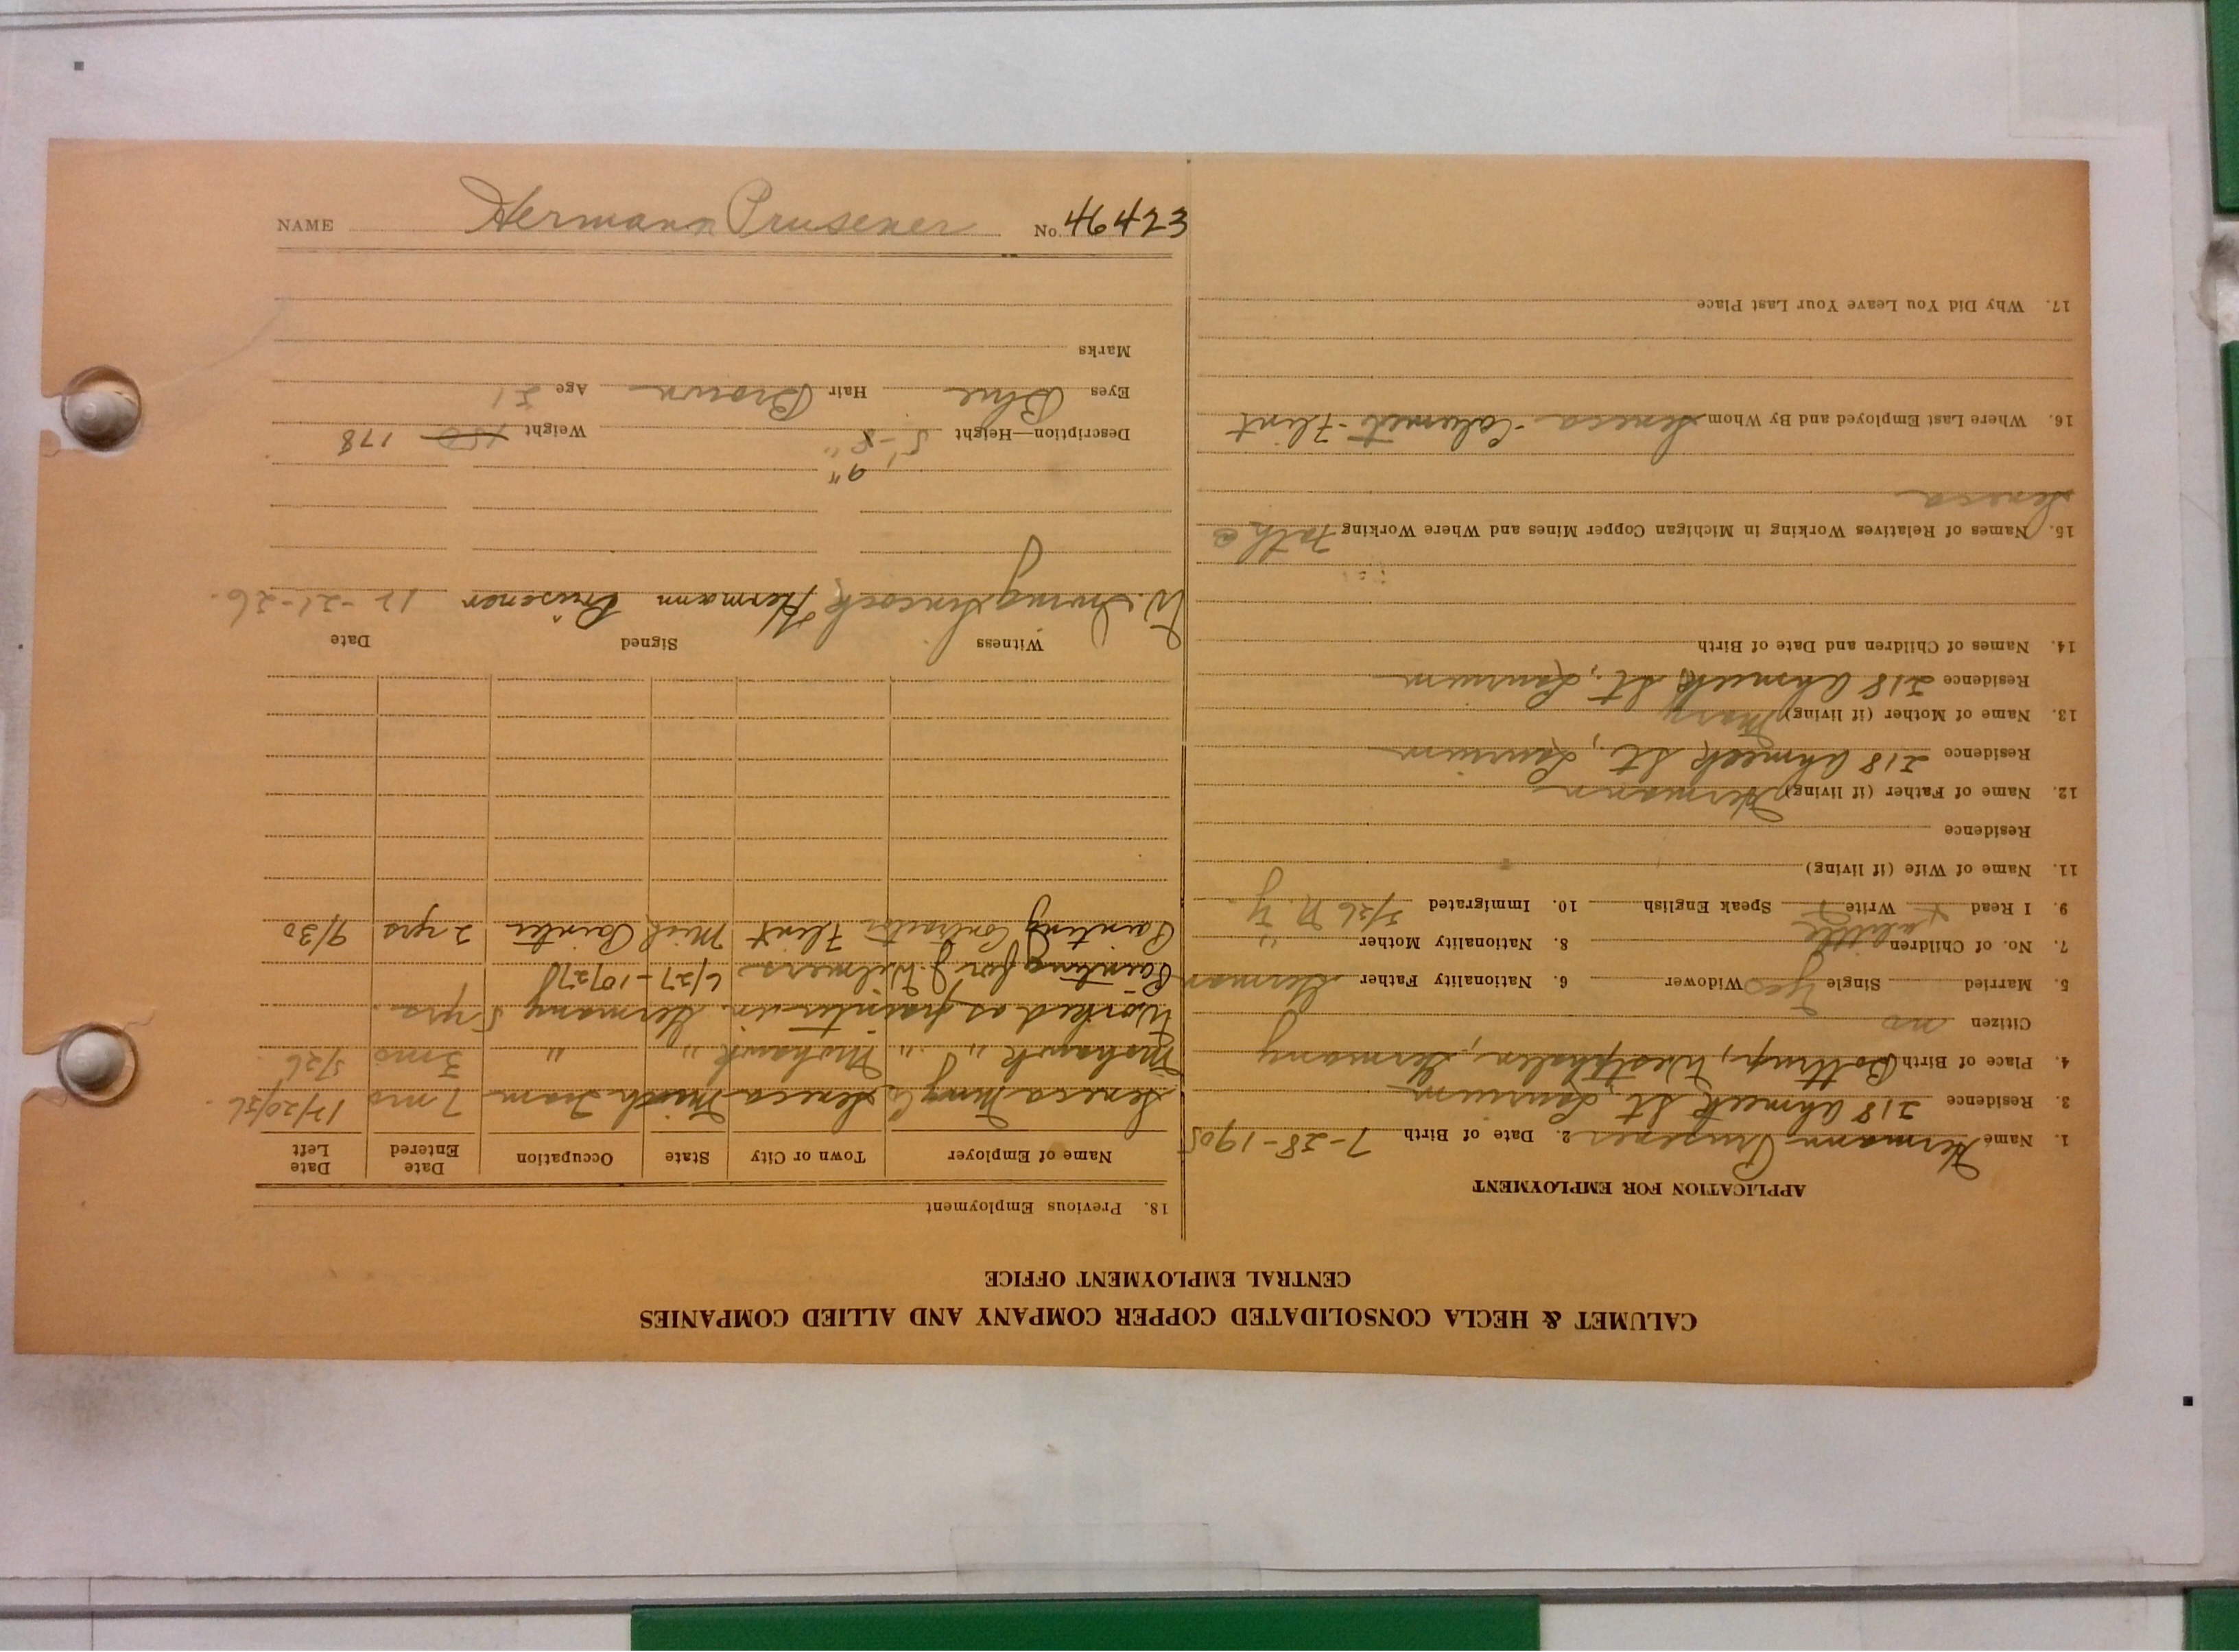 CALUMET & HECLA CONSOLIDATED COPPER COMPANY AND ALLIED COMPANIES
CENTRAL EMPLOYMENT OFFICE
APPLICATION FOR EMPLOYMENT
1. Name Hermann Prusener 2. Date of Birth 7-28-1905
3. Residence 218 Ahmeek St, Laurium
4. Place of Birth Bottrup, Westphalen, Germany
Citizen no
5. Married Single Yes Widower 6. Nationality Father German
7. No. of Children 8. Nationality Mother "
9. I Read Write Speak English a little 10. Immigrated 3/26 N.Y.
11. Name of Wife (if living)
Residence
12. Name of Father (if living) Hermann
Residence 218 Ahmeek St, Laurium
13. Name of Mother (if living) Mary
Residence 218 Ahmeek St, Laurium
14. Names of Children and Date of Birth
15. Names of Relatives Working in Michigan Copper Mines and Where Working Father
Seneca
16. Where Last Employed and By Whom Seneca - Calumet - Flint
17. Why Did You Leave Your Last Place
18. Previous Employment
Name of Employer Town or City State Occupation Date Entered Date Left
Seneca Mng Co Seneca Mich Tram 7 mo 12/20/26.
Mohawk " " Mohawk " " 3 mo 5/26
Worked as painter in Germany 5 yrs.
Painting for J. Wilmers 6/27-10/27
Painting Contractor Flint Mich Painter 2 yrs 9/30
Witness Signed Date
W. Irving Hancock Hermann Prusener 12-21-26.
9"
Description—Height 5'-8" Weight 150 178
Eyes Blue Hair Brown Age 21
Marks
NAME Hermann Prusener No. 46423